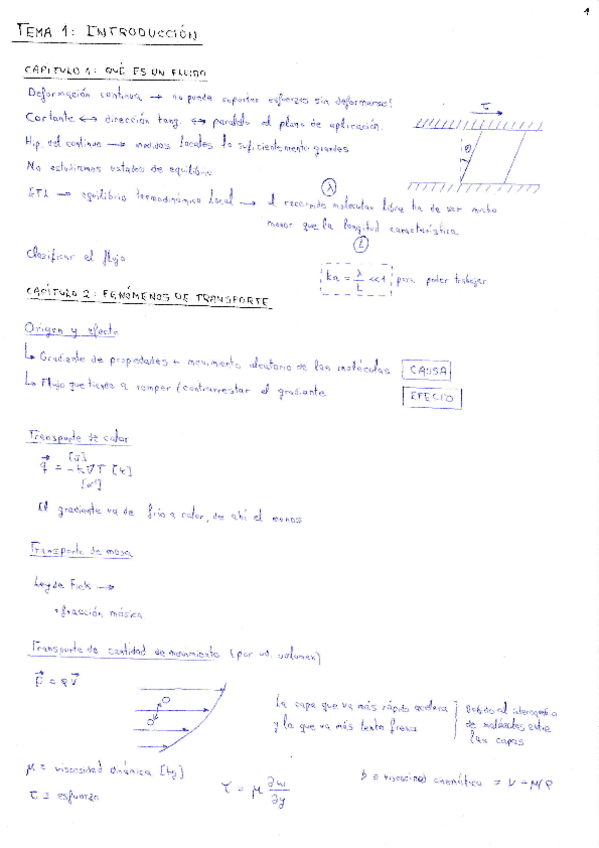 1
TEMA 1: INTRODUCCIÓN
CAPÍTULO 1: QUÉ ES UN FLUIDO
Deformación continua → no puede soportar esfuerzos sin deformarse!
τ
Cortante ↔ dirección tang. ↔ paralelo al plano de aplicación.
θ
Hip. del continuo → medidas locales lo suficientemente grandes
No estudiamos estados de equilibrio
λ
ETL → equilibrio termodinámico local → el recorrido molecular libre ha de ser mucho
menor que la longitud característica
L
Clasificar el flujo
Kn = λ/L <<1 para poder trabajar
CAPÍTULO 2: FENÓMENOS DE TRANSPORTE
Origen y efecto
↳ Gradiente de propiedades + movimiento aleatorio de las moléculas CAUSA
↳ Flujo que tiende a romper/contrarrestar el gradiente EFECTO
Transporte de calor
q = -k∇T [K]
El gradiente va de frío a calor, de ahí el menos
Transporte de masa
Ley de Fick →
fracción másica
Transporte de cantidad de movimiento (por ud. volumen)
P = ρV
La capa que va más rápido acelera
y la que va más lenta frena
Debido al intercambio
de moléculas entre
las capas
μ = viscosidad dinámica
τ = esfuerzo
τ = μ ∂u/∂y
viscosidad cinemática = ν = μ/ρ